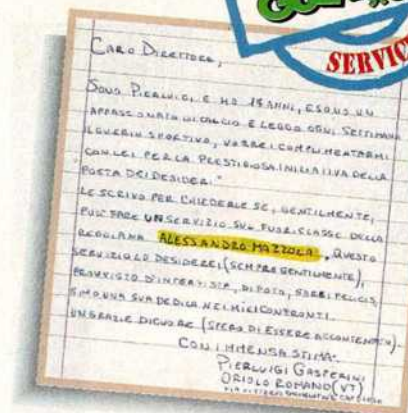 SERVICE
CARO DIRETTORE,
SONO PIERLUIGI, E HO 18 ANNI, E SONO UN
APPASSIONATO DI CALCIO E LEGGO OGNI SETTIMANA
IL GUERIN SPORTIVO, VORREI COMPLIMENTARMI
CON LEI PER LA PRESTIGIOSA INIZIATIVA DELLA
POSTA DEI DESIDERI."
LE SCRIVO PER CHIEDERLE SE, GENTILMENTE,
PUO' FARE UN SERVIZIO SUL FUORICLASSE DELLA
REGGIANA ALESSANDRO MAZZOLA, QUESTO
SERVIZIO LO DESIDEREI, (SEMPRE GENTILMENTE),
PROVVISTO D'INTERVISTA, DI FOTO, SAREI FELICIS
SIMO UNA SUA DEDICA NEI MIEI CONFRONTI.
UN GRAZIE DI CUORE (SPERO DI ESSERE ACCONTENTATO).
CON IMMENSA STIMA.
PIERLUIGI GASPERINI
ORIOLO ROMANO (VT)